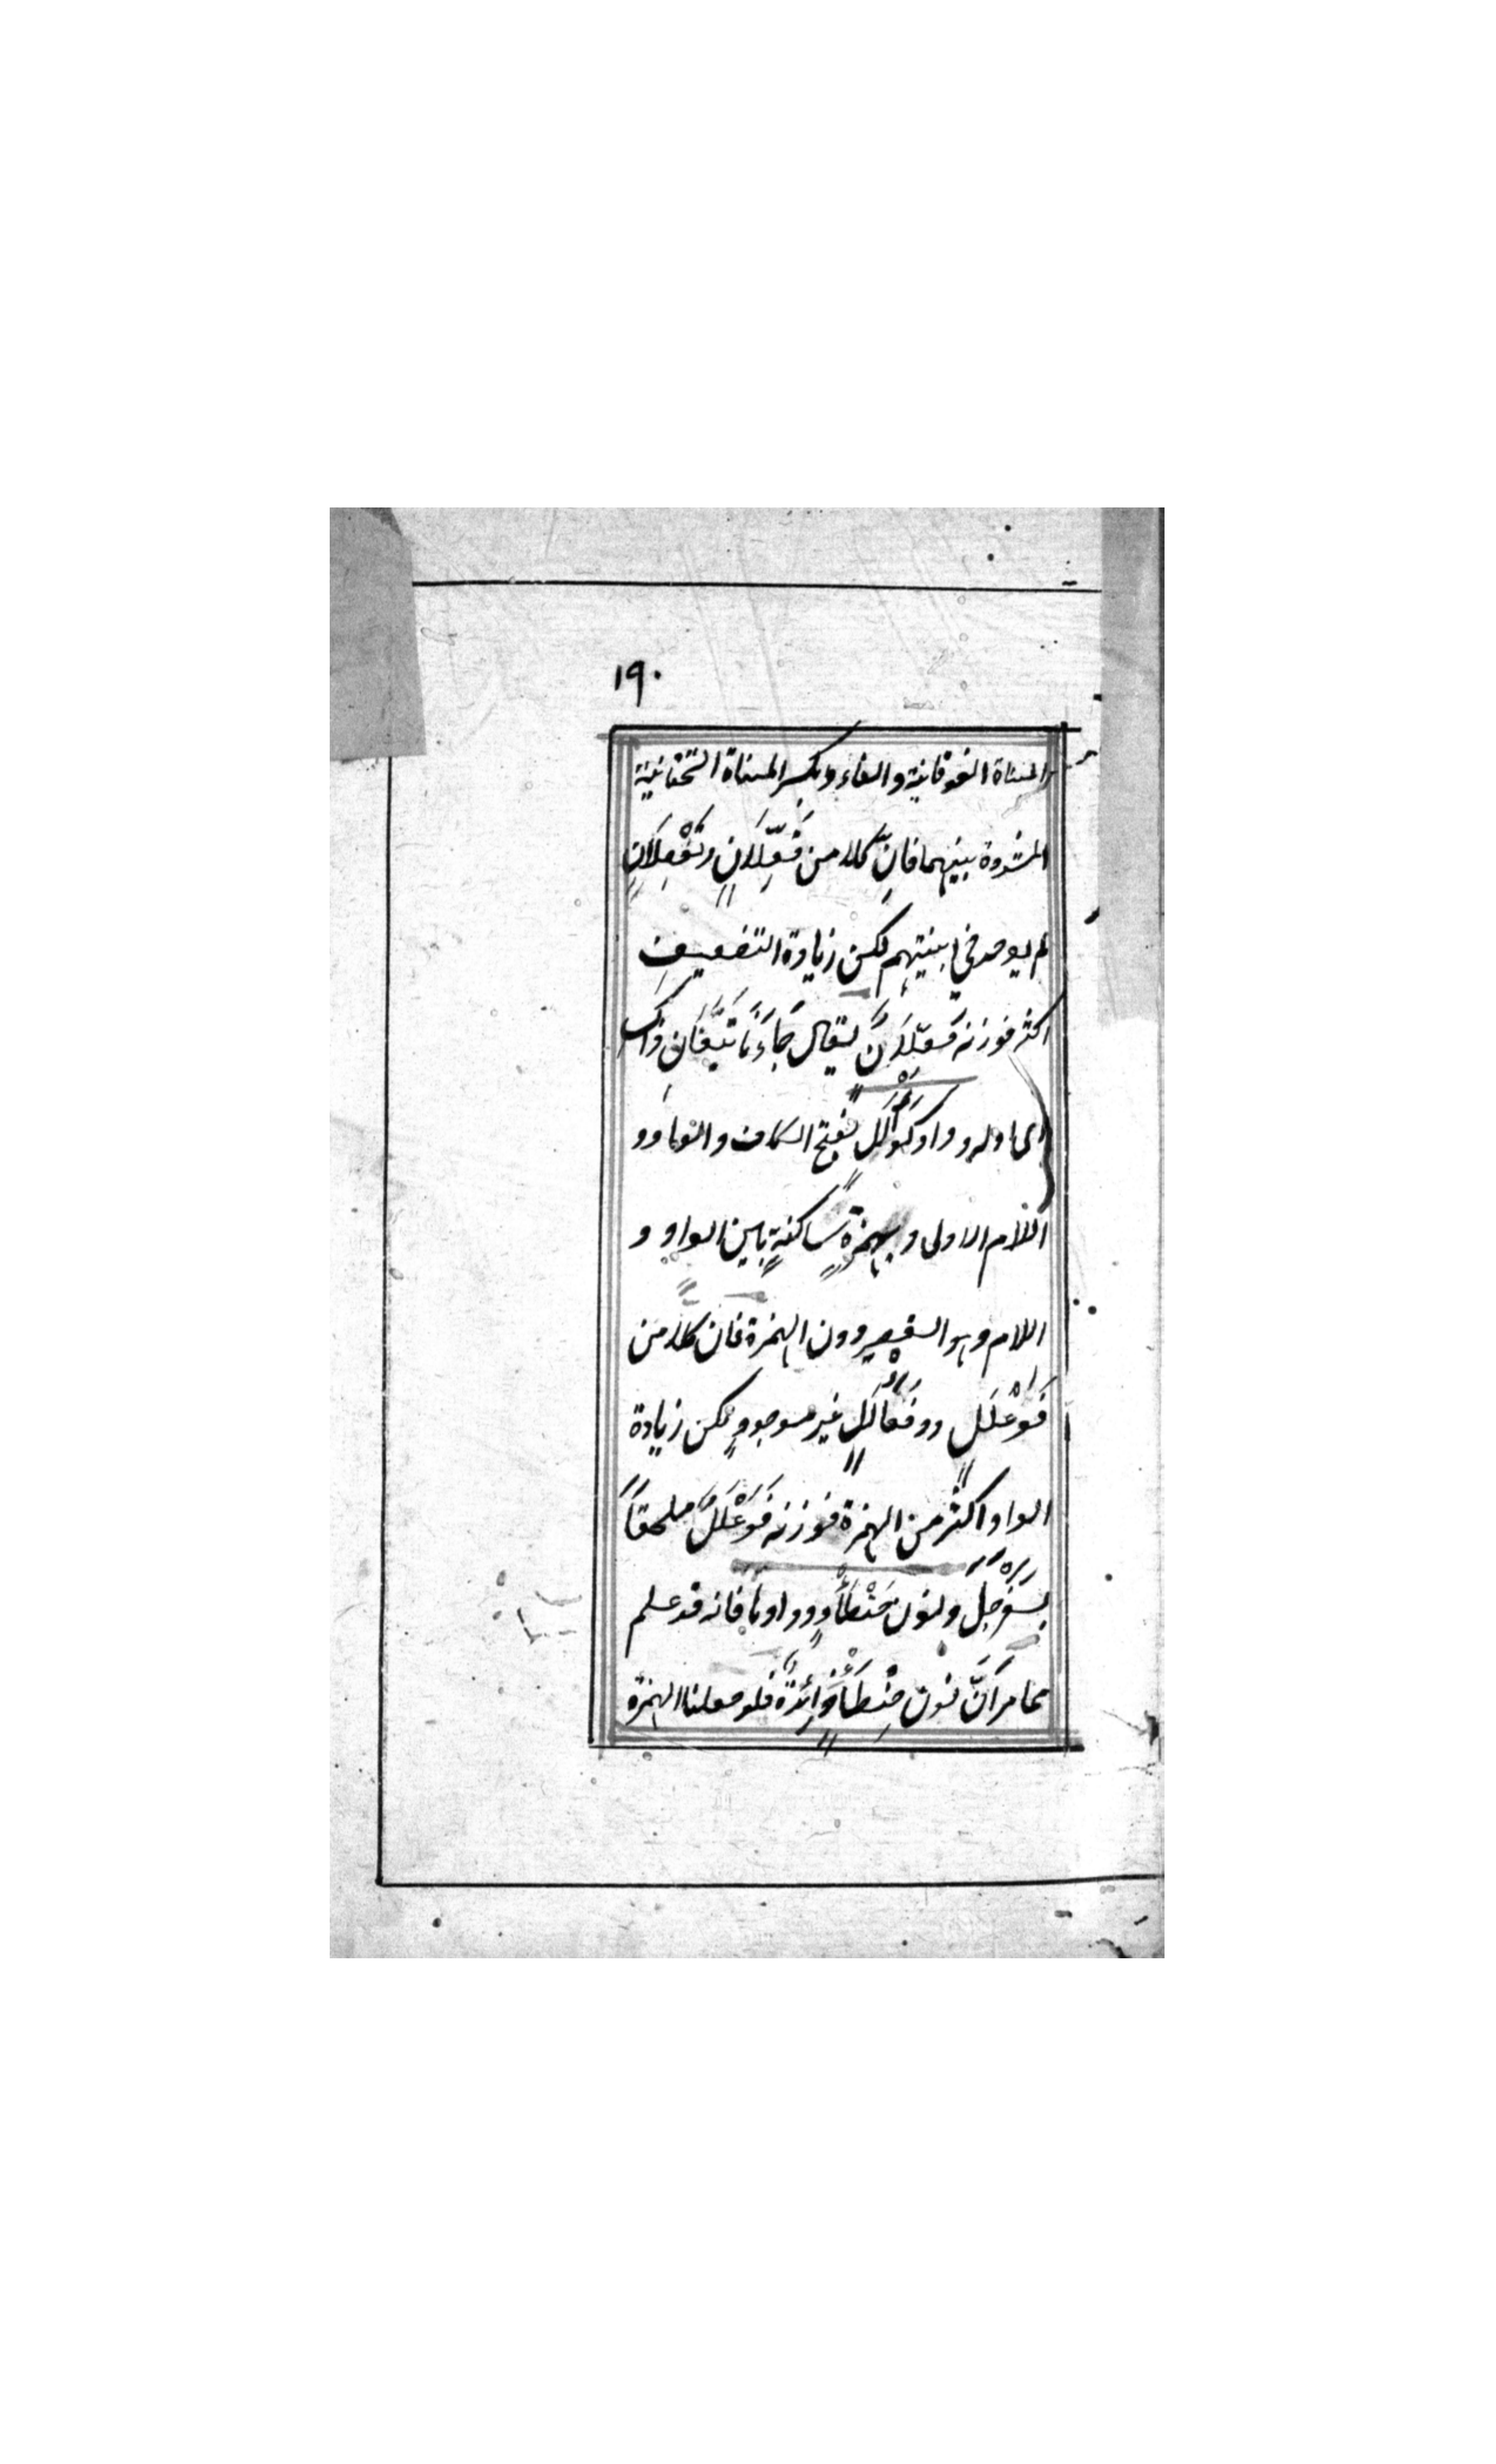 ١٩٠
المثناة الفوقانية والفاء وبكسر المثناة التحتانية
المشددة بينهما فانّ كلا من فَعِّلَانٍ وتَفْعِلَانٍ
لم يوجد في ابنيتهم لكن زيادة التضعيف
اكثر فوزنه فَعِّلَانٌ يقال جَاءَنَا تَئِفَّانِ ذاك
اى اوله وواو كَوَأْلَلٍ بفتح الكاف والواو و
اللام الاولى وبهمزةٍ ساكنةٍ بين الواو و
اللام وهو القصير دون الهمزة فان كلا من
فَوَعْلَلٍ وفَعَأْلَلٍ غير موجودٍ لكن زيادة
الواو اكثر من الهمزة فوزنه فَوَعْلَلٌ ملحقاً
بسَفَرْجَلٍ ونون حِنْطَأْوٍ وواوها فانه قد علم
مما مر انّ نون حِنْطَأْوٍ زائدةٌ فلو جعلنا الهمزة